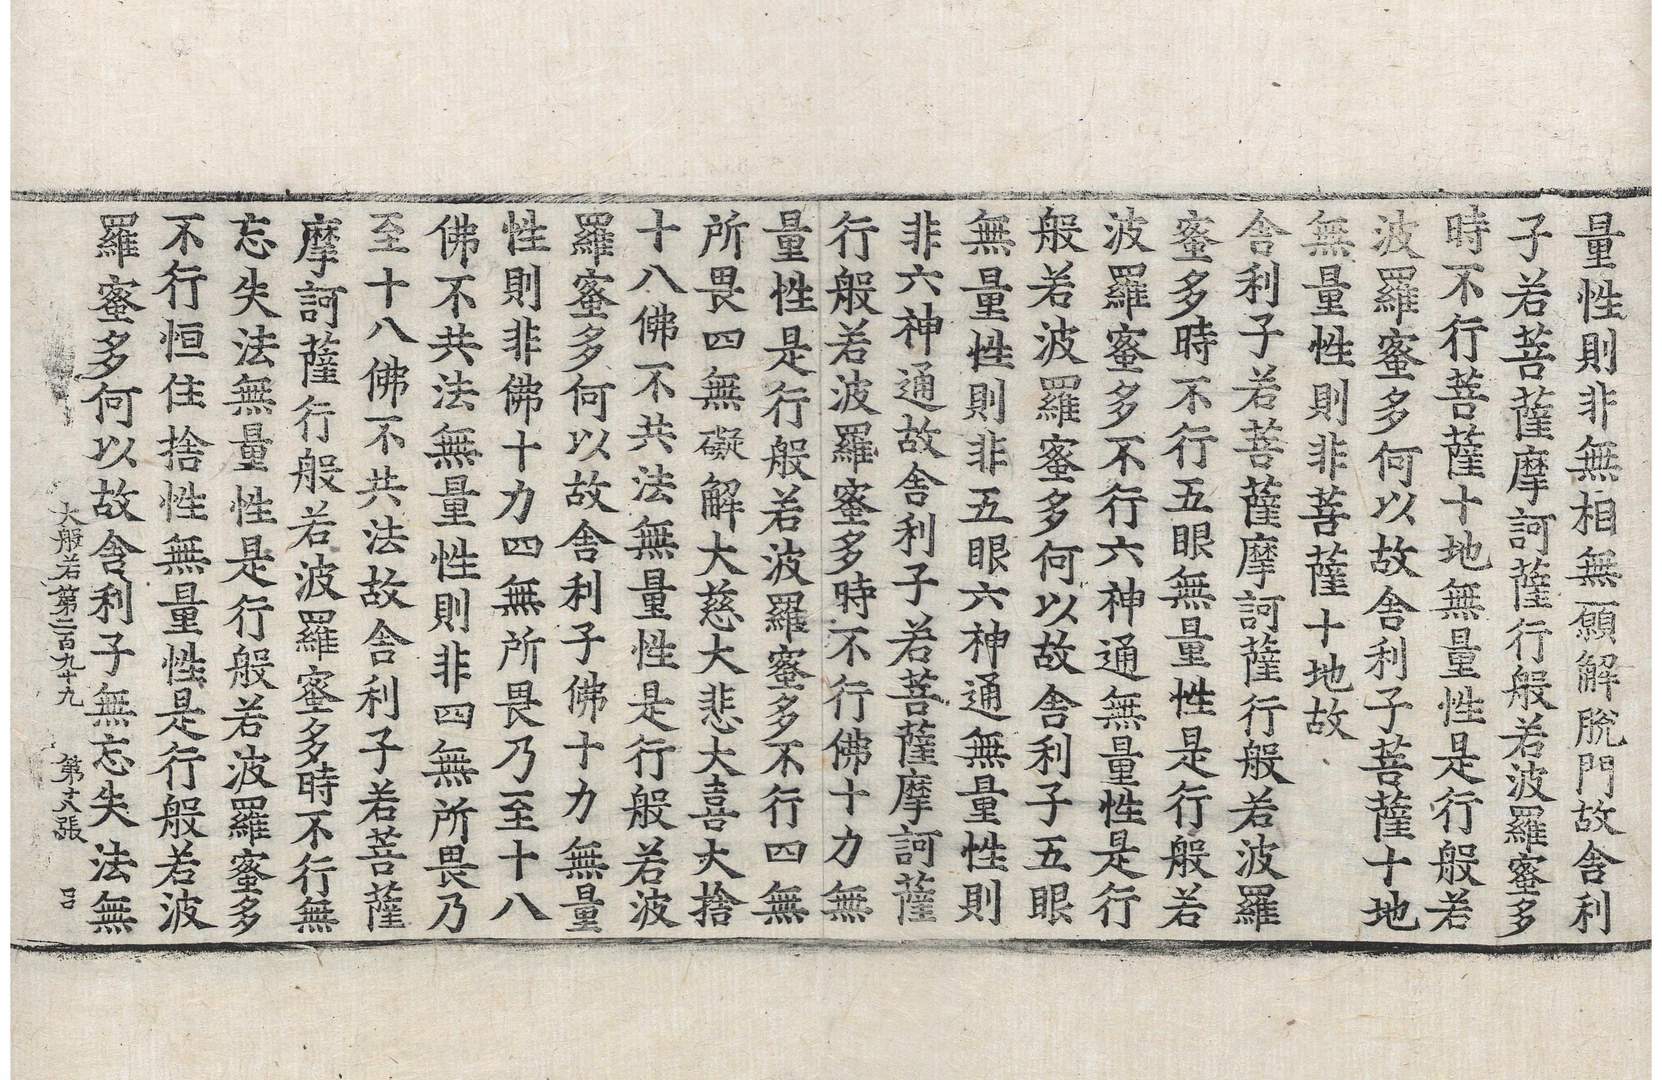 量性則非無相無願解脫門故舍利
子若菩薩摩訶薩行般若波羅蜜多
時不行菩薩十地無量性是行般若
波羅蜜多何以故舍利子菩薩十地
無量性則非菩薩十地故
舍利子若菩薩摩訶薩行般若波羅
蜜多時不行五眼無量性是行般若
波羅蜜多不行六神通無量性是行
般若波羅蜜多何以故舍利子五眼
無量性則非五眼六神通無量性則
非六神通故舍利子若菩薩摩訶薩
行般若波羅蜜多時不行佛十力無
量性是行般若波羅蜜多不行四無
所畏四無礙解大慈大悲大喜大捨
十八佛不共法無量性是行般若波
羅蜜多何以故舍利子佛十力無量
性則非佛十力四無所畏乃至十八
佛不共法無量性則非四無所畏乃
至十八佛不共法故舍利子若菩薩
摩訶薩行般若波羅蜜多時不行無
忘失法無量性是行般若波羅蜜多
不行恒住捨性無量性是行般若波
羅蜜多何以故舍利子無忘失法無
大般若第二百九十九 第十八張